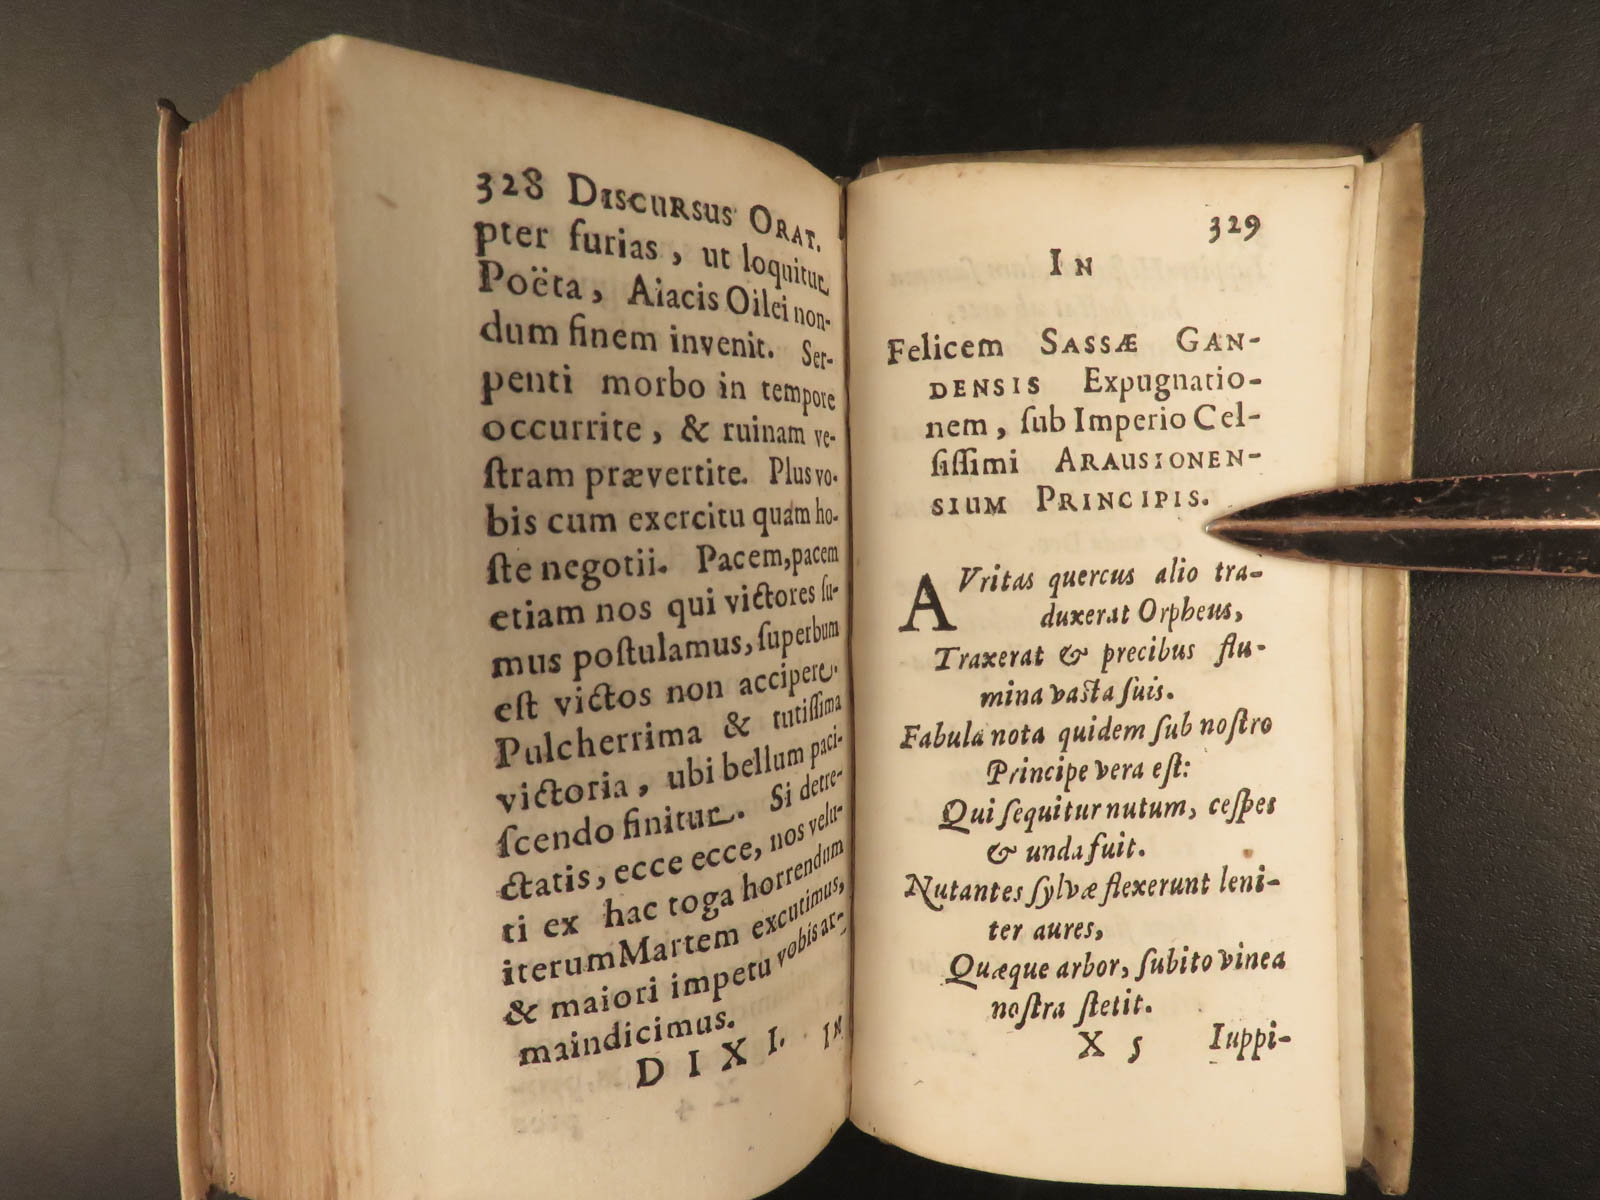 328 DISCURSUS ORAT.
pter furias, ut loquitur
Poëta, Aiacis Oilei non-
dum finem invenit. Ser-
penti morbo in tempore
occurrite, & ruinam ve-
ſtram prævertite. Plus vo-
bis cum exercitu quàm ho-
ſte negotii. Pacem, pacem
etiam nos qui victores ſu-
mus poſtulamus, ſuperbum
eſt victos non accipere.
Pulcherrima & tutiſſima
victoria, ubi bellum paci-
ſcendo finitur. Si detre-
ctatis, ecce ecce, nos velu-
ti ex hac toga horrendum
iterum Martem excutimus,
& maiori impetu vobis ar-
ma indicimus.
DIXI. IN
329
IN
Felicem SASSÆ GAN-
DENSIS Expugnatio-
nem, ſub Imperio Cel-
ſiſſimi ARAUSIONEN-
SIUM PRINCIPIS.
AVritas quercus alio tra-
duxerat Orpheus,
Traxerat & precibus flu-
mina vaſta ſuis.
Fabula nota quidem ſub noſtro
Principe vera eſt:
Qui ſequitur nutum, ceſpes
& unda fuit.
Nutantes ſylvæ flexerunt leni-
ter aures,
Quæque arbor, ſubito vinea
noſtra ſtetit.
X 5 Iuppi-